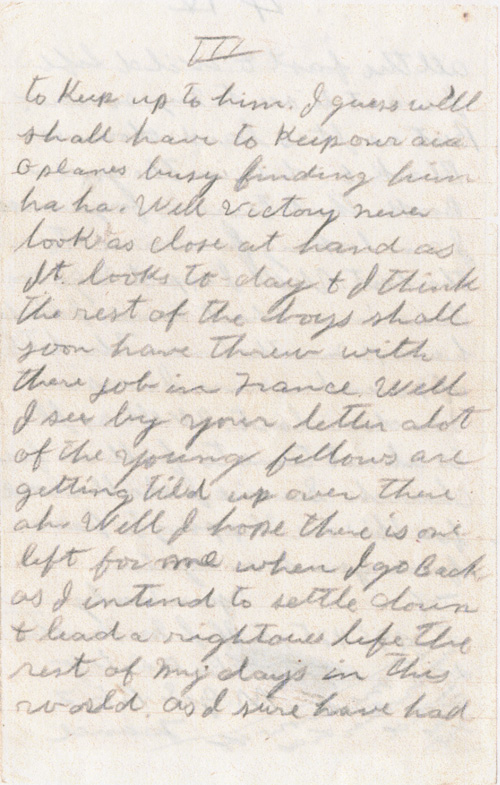 III
to Keep up to him. I guess we'll
shall have to Keep our aia
oplanes busy finding him
ha ha. Well victory never
look as close at hand as
It looks to-day & I think
the rest of the boys shall
soon have threw with
there job in France. Well
I see by your letter alot
of the young fellows are
getting tied up over there
ah. Well I hope there is one
left for me when I go Back
as I intend to settle down
& lead a rightous life the
rest of my days in this
world. as I sure have had